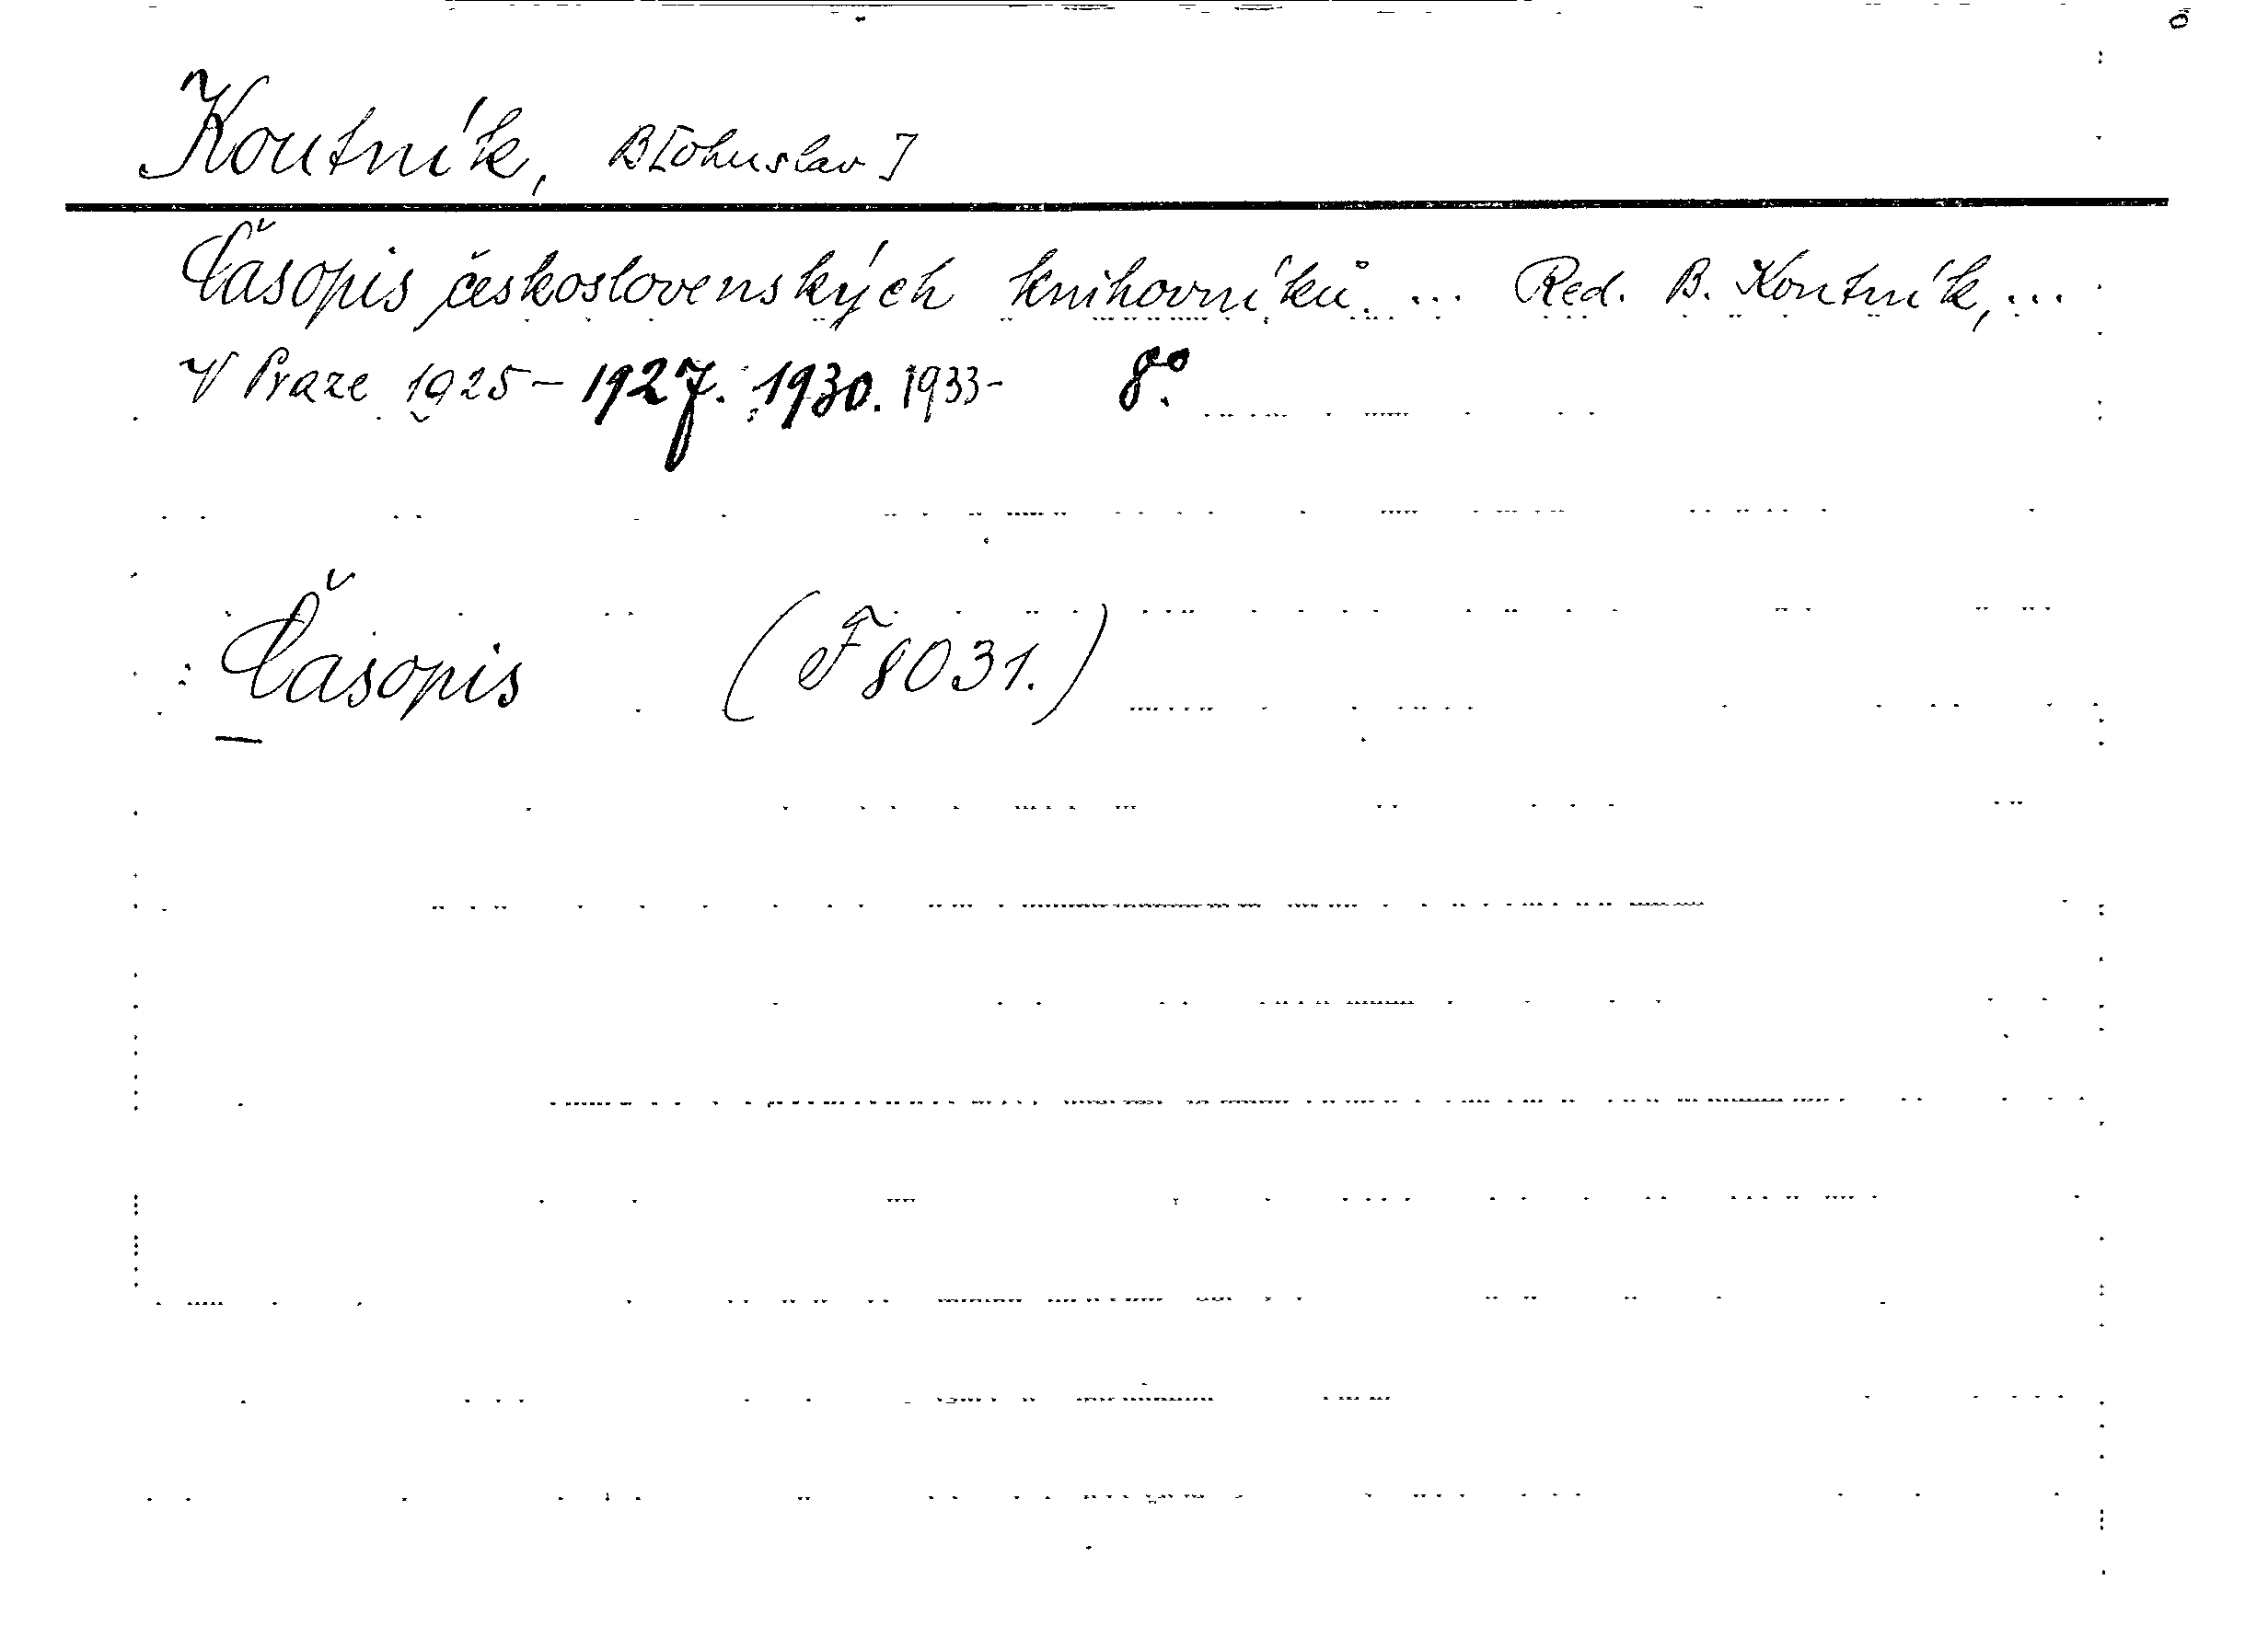 Koutník, B[ohuslav]
Časopis československých knihovníků. ... Red. B. Koutník, ...
V Praze 1925- 1927. 1930. 1933- 8°.
Časopis (F 8031.)